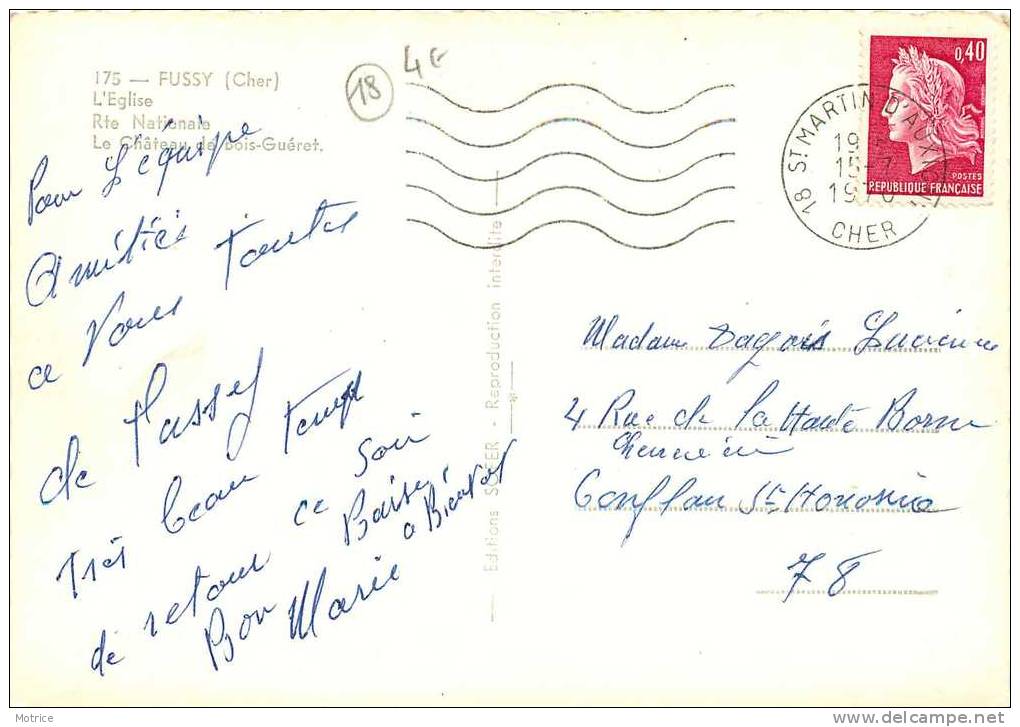 175 — FUSSY (Cher)
L'Eglise
Rte Nationale
Le Château de Bois-Guéret.
18
4€
Pour L'équipe
Amitiés
a Vous Toutes
de Fussy
Très beau temps
de retour ce soir
Bon Baiser
Marie a Bientot
Editions SOFER - Reproduction interdite
0,40
POSTES
REPUBLIQUE FRANÇAISE
18 ST MARTIN D'AUXIGNY
19
15-7
1970
CHER
Madame Lucienne
4 Rue de la Haute Borne
Chennevière
Conflan St Honorine
78
Motrice
delcampe.net